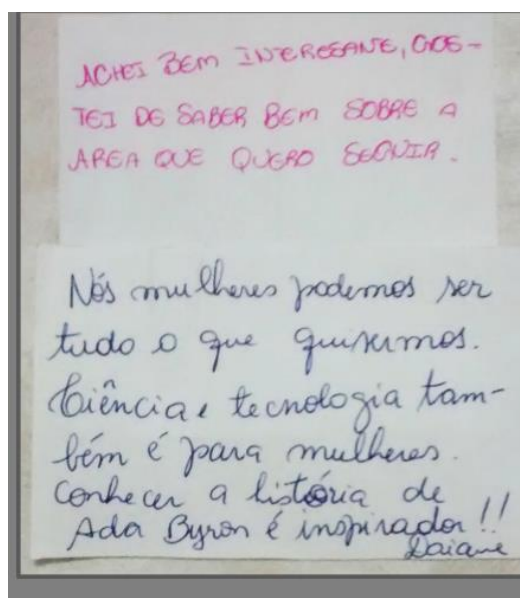 ACHEI BEM INTERESANTE, GOS-
TEI DE SABER BEM SOBRE A
AREA QUE QUERO SEGUIR.
Nós mulheres podemos ser
tudo o que quisermos.
Ciência e tecnologia tam-
bém é para mulheres.
Conhecer a história de
Ada Byron é inspirador!!
Daiane